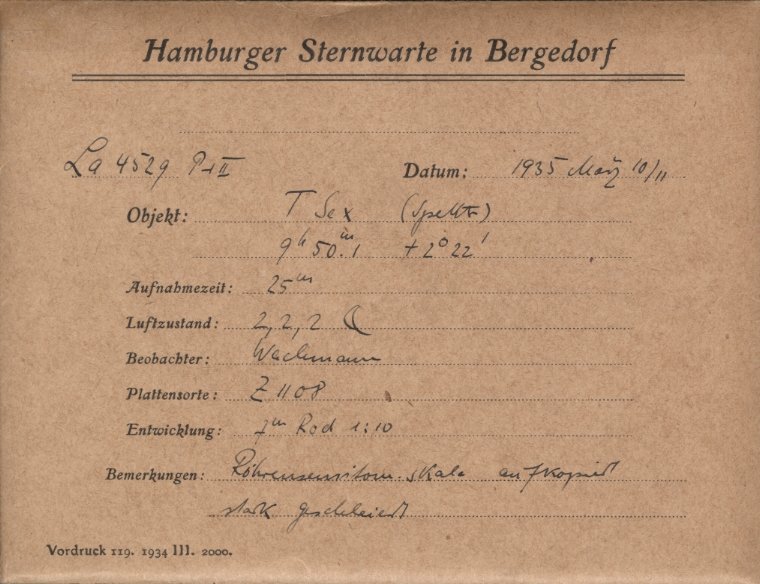 Hamburger Sternwarte in Bergedorf
La 4529 P+II Datum: 1935 März 10/11
Objekt: T Sex (Spektr)
9h 50.m1 +2° 22'
Aufnahmezeit: 25m
Luftzustand: 2, 2, 2
Beobachter: Wachmann
Plattensorte: Z 1108
Entwicklung: 7m Rod 1:10
Bemerkungen: Röhrensensitom. skala aufkopiert
stark geschleiert
Vordruck 119. 1934 III. 2000.